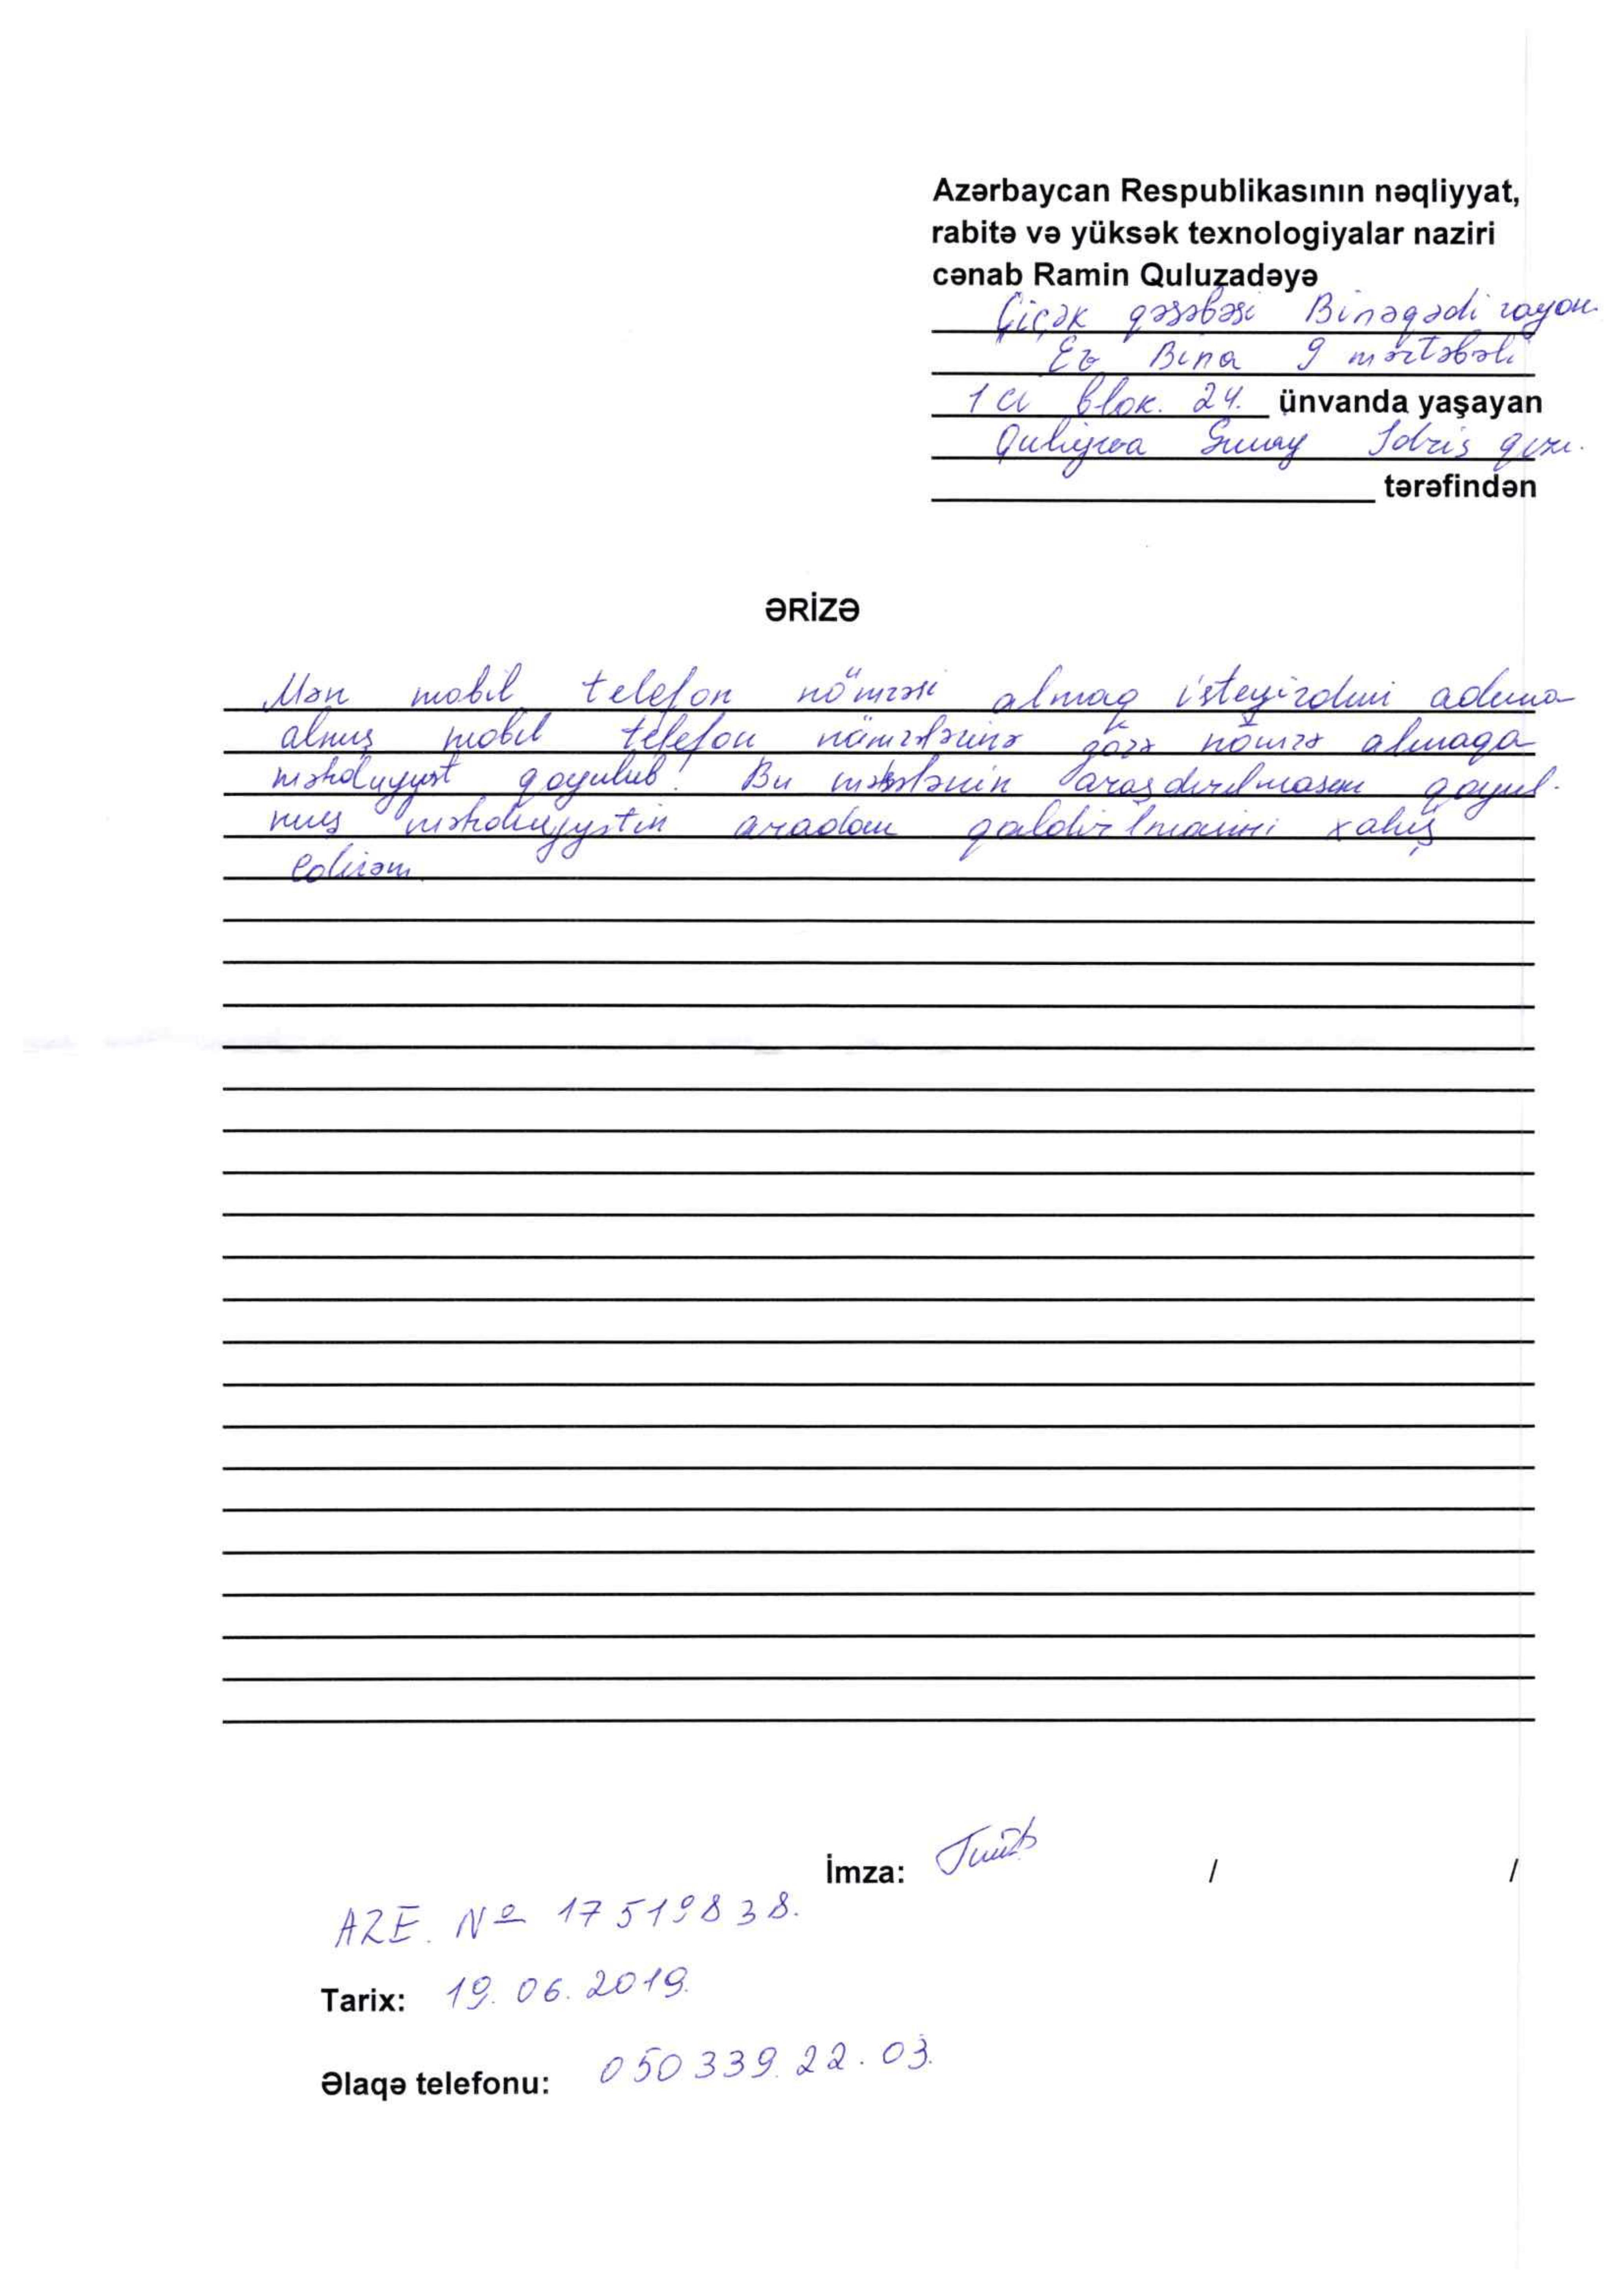 Azərbaycan Respublikasının nəqliyyat,
rabitə və yüksək texnologiyalar naziri
cənab Ramin Quluzadəyə
Çiçək qəsəbəsi Binəqədi rayon.
Ev Bina 9 mərtəbəli
1 ci blok. 24. ünvanda yaşayan
Quliyeva Günay İdris qızı.
tərəfindən
ƏRİZƏ
Mən mobil telefon nömrəsi almaq istəyirdim adıma
alnmış mobil telefon nömrələrinə görə nömrə almağa
məhduyyət qoyulub. Bu məsələnin araşdırılmasını qoyul-
muş məhduyyətin aradan qaldırılmasını xahiş
edirəm
İmza: / /
AZE. № 17519838.
Tarix: 19.06.2019.
Əlaqə telefonu: 050 339.22.03.